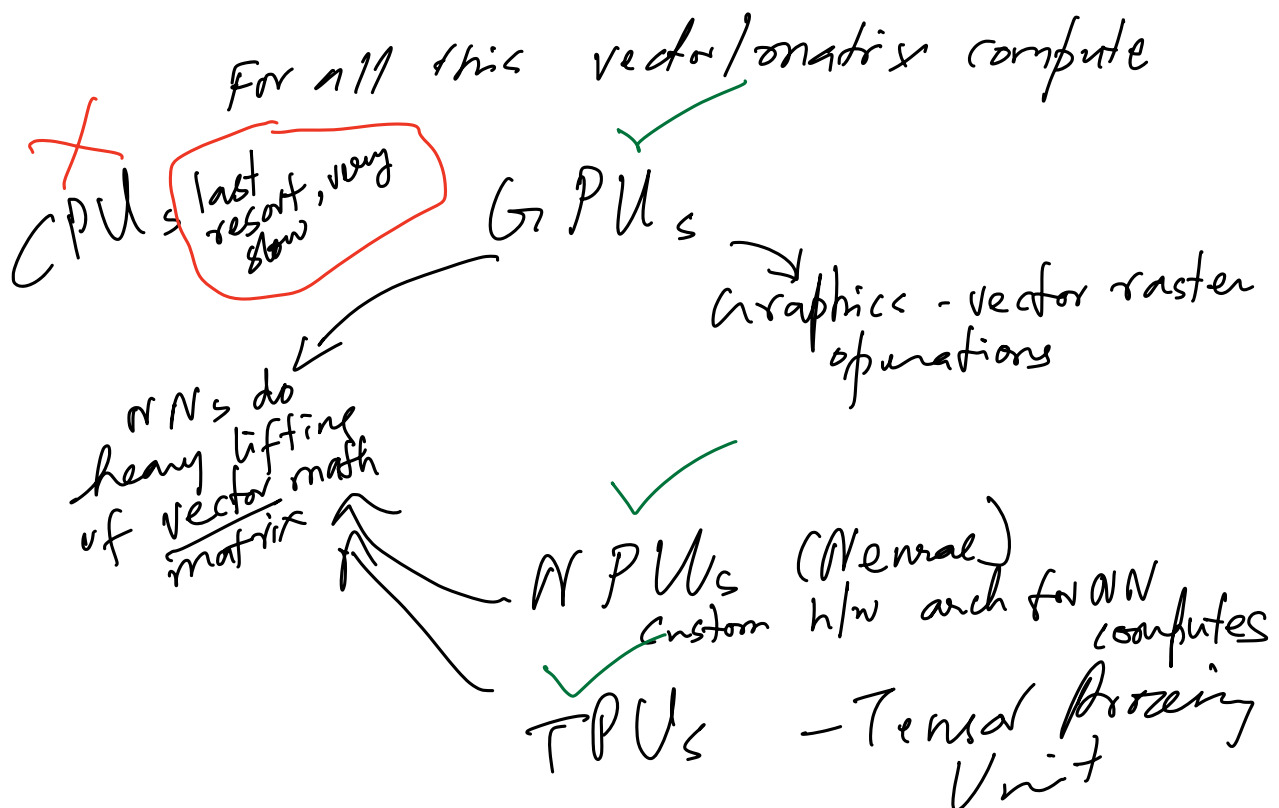 For all this vector/matrix compute
CPUs
last
resort, very
slow
GPUs
Graphics - vector raster
operations
NNs do
heavy lifting
of vector math
matrix
NPUs (Neural)
custom h/w arch for NN
computes
TPUs - Tensor Processing
Unit